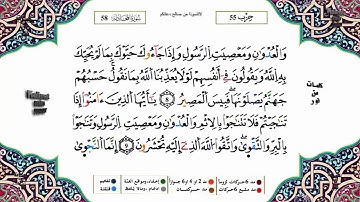 لاتنسونا من صالح دعائكم
حزب 55
سورة المجادلة 58
وَالْعُدْوَٰنِ وَمَعْصِيَتِ الرَّسُولِ وَإِذَا جَآءُوكَ حَيَّوْكَ بِمَا لَمْ يُحَيِّكَ
بِهِ اللَّهُ وَيَقُولُونَ فِىٓ أَنفُسِهِمْ لَوْلَا يُعَذِّبُنَا اللَّهُ بِمَا نَقُولُ حَسْبُهُمْ
جَهَنَّمُ يَصْلَوْنَهَا فَبِئْسَ الْمَصِيرُ ۝٨ يَٰٓأَيُّهَا الَّذِينَ ءَامَنُوٓا۟ إِذَا
تَنَٰجَيْتُمْ فَلَا تَتَنَٰجَوْا۟ بِالْإِثْمِ وَالْعُدْوَٰنِ وَمَعْصِيَتِ الرَّسُولِ وَتَنَٰجَوْا۟
بِالْبِرِّ وَالتَّقْوَىٰ وَاتَّقُوا۟ اللَّهَ الَّذِىٓ إِلَيْهِ تُحْشَرُونَ ۝٩ إِنَّمَا النَّجْوَىٰ
من
نور